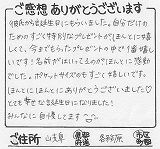 ご感想ありがとうございます
彼氏から誕生日にもらいました。自分だけの
ためのすごく特別なプレゼントがほんとに嬉
しくて、今までもらったプレゼントの中で1番嬉し
いです！名前がはいってるのがほんとに感動
でした。ポケットサイズのもすごく嬉しいです。
ほんとにほんとにありがとうございました♡
とても幸せな誕生日になりました！
みんなに自慢してます
ご住所 山梨県